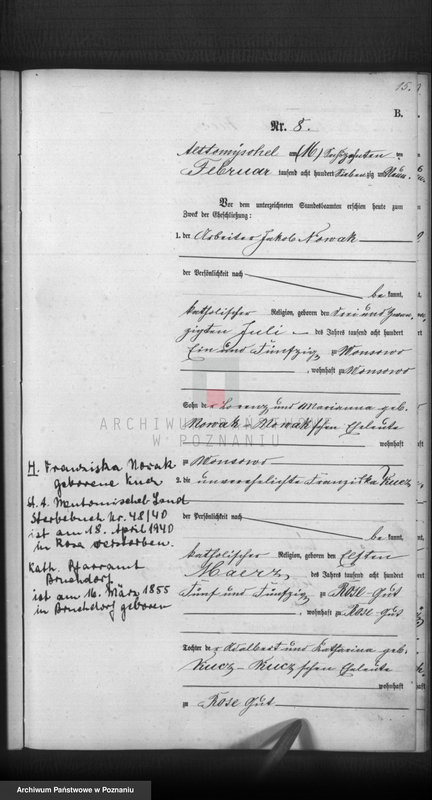 15.
B.
Nr. 8.
Alttomyschel am (16) Sechszehnten ten
Februar tausend acht hundert siebenzig und Neun.
Vor dem unterzeichneten Standesbeamten erschien heute zum
Zweck der Eheschließung:
1. der Arbeiter Jakob Nowak
der Persönlichkeit nach
be kannt,
katholischer Religion, geboren den Drei und Zwan-
zigten Juli des Jahres tausend acht hundert
Ein und Fünfzig, zu Wonsowo
, wohnhaft zu Wonsowo
Sohn der Lorenz und Marianna geb.
Nowak - Nowak'schen Eheleute
wohnhaft
zu Wonsowo
2. die unverehelichte Franziska Kucz
der Persönlichkeit nach
be kannt,
katholischer Religion, geboren den Elften
Maerz des Jahres tausend acht hundert
Fünf und Fünfzig, zu Rose-Gut
, wohnhaft zu Rose-Gut
Tochter der Adalbert und Katharina geb.
Kucz - Kucz'schen Eheleute
wohnhaft
zu Rose Gut
H. Franziska Nowak
geborene Kucz
St. A. Neutomischel-Land
Sterbebuch Nr. 48/40
ist am 18. April 1940
in Rose verstorben.
Kath. Pfarramt
Bruchdorf
ist am 16. März 1855
in Bruchdorf geboren
ARCHIWUM PAŃSTWOWE
W POZNANIU
Archiwum Państwowe w Poznaniu